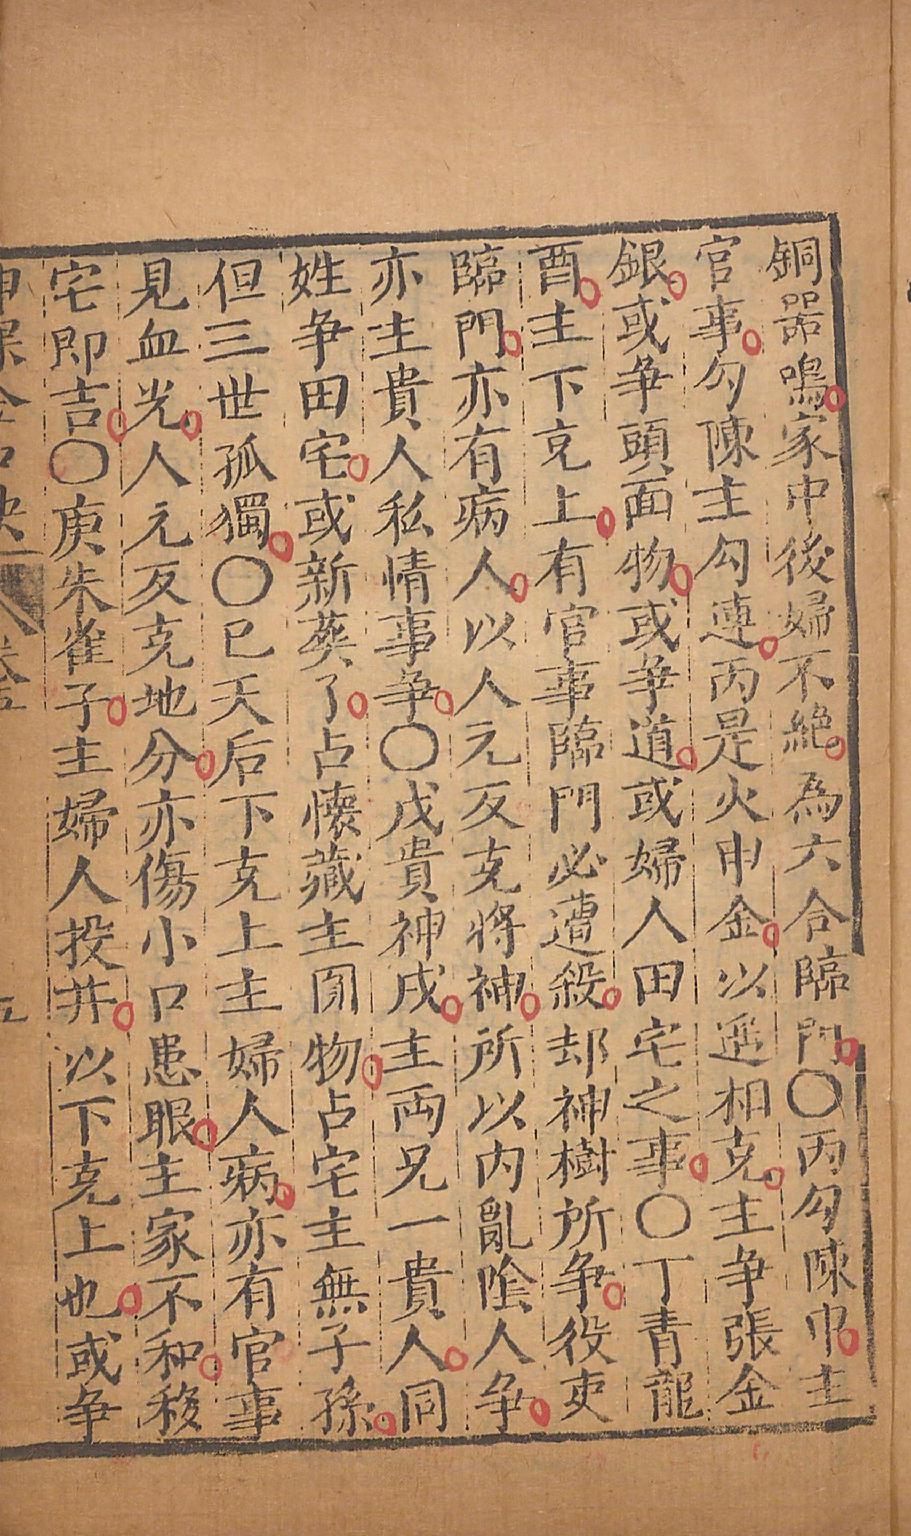 銅器鳴家中後婦不絕為六合臨門〇丙勾陳申主
官事勾陳主勾連丙是火申金以遥相克主争張金
銀或争頭面物或争道或婦人田宅之事〇丁青龍
酉主下克上有官事臨門必遭殺却神樹所争役吏
臨門亦有病人以人元反克將神所以内亂陰人争
亦主貴人私情事争〇戊貴神戌主両兄一貴人同
姓争田宅或新葬了占懷藏主圎物占宅主無子孫
但三世孤獨〇已天后下克上主婦人病亦有官事
見血光人元反克地分亦傷小口患眼主家不和移
宅即吉〇庚朱雀子主婦人投井以下克上也或争